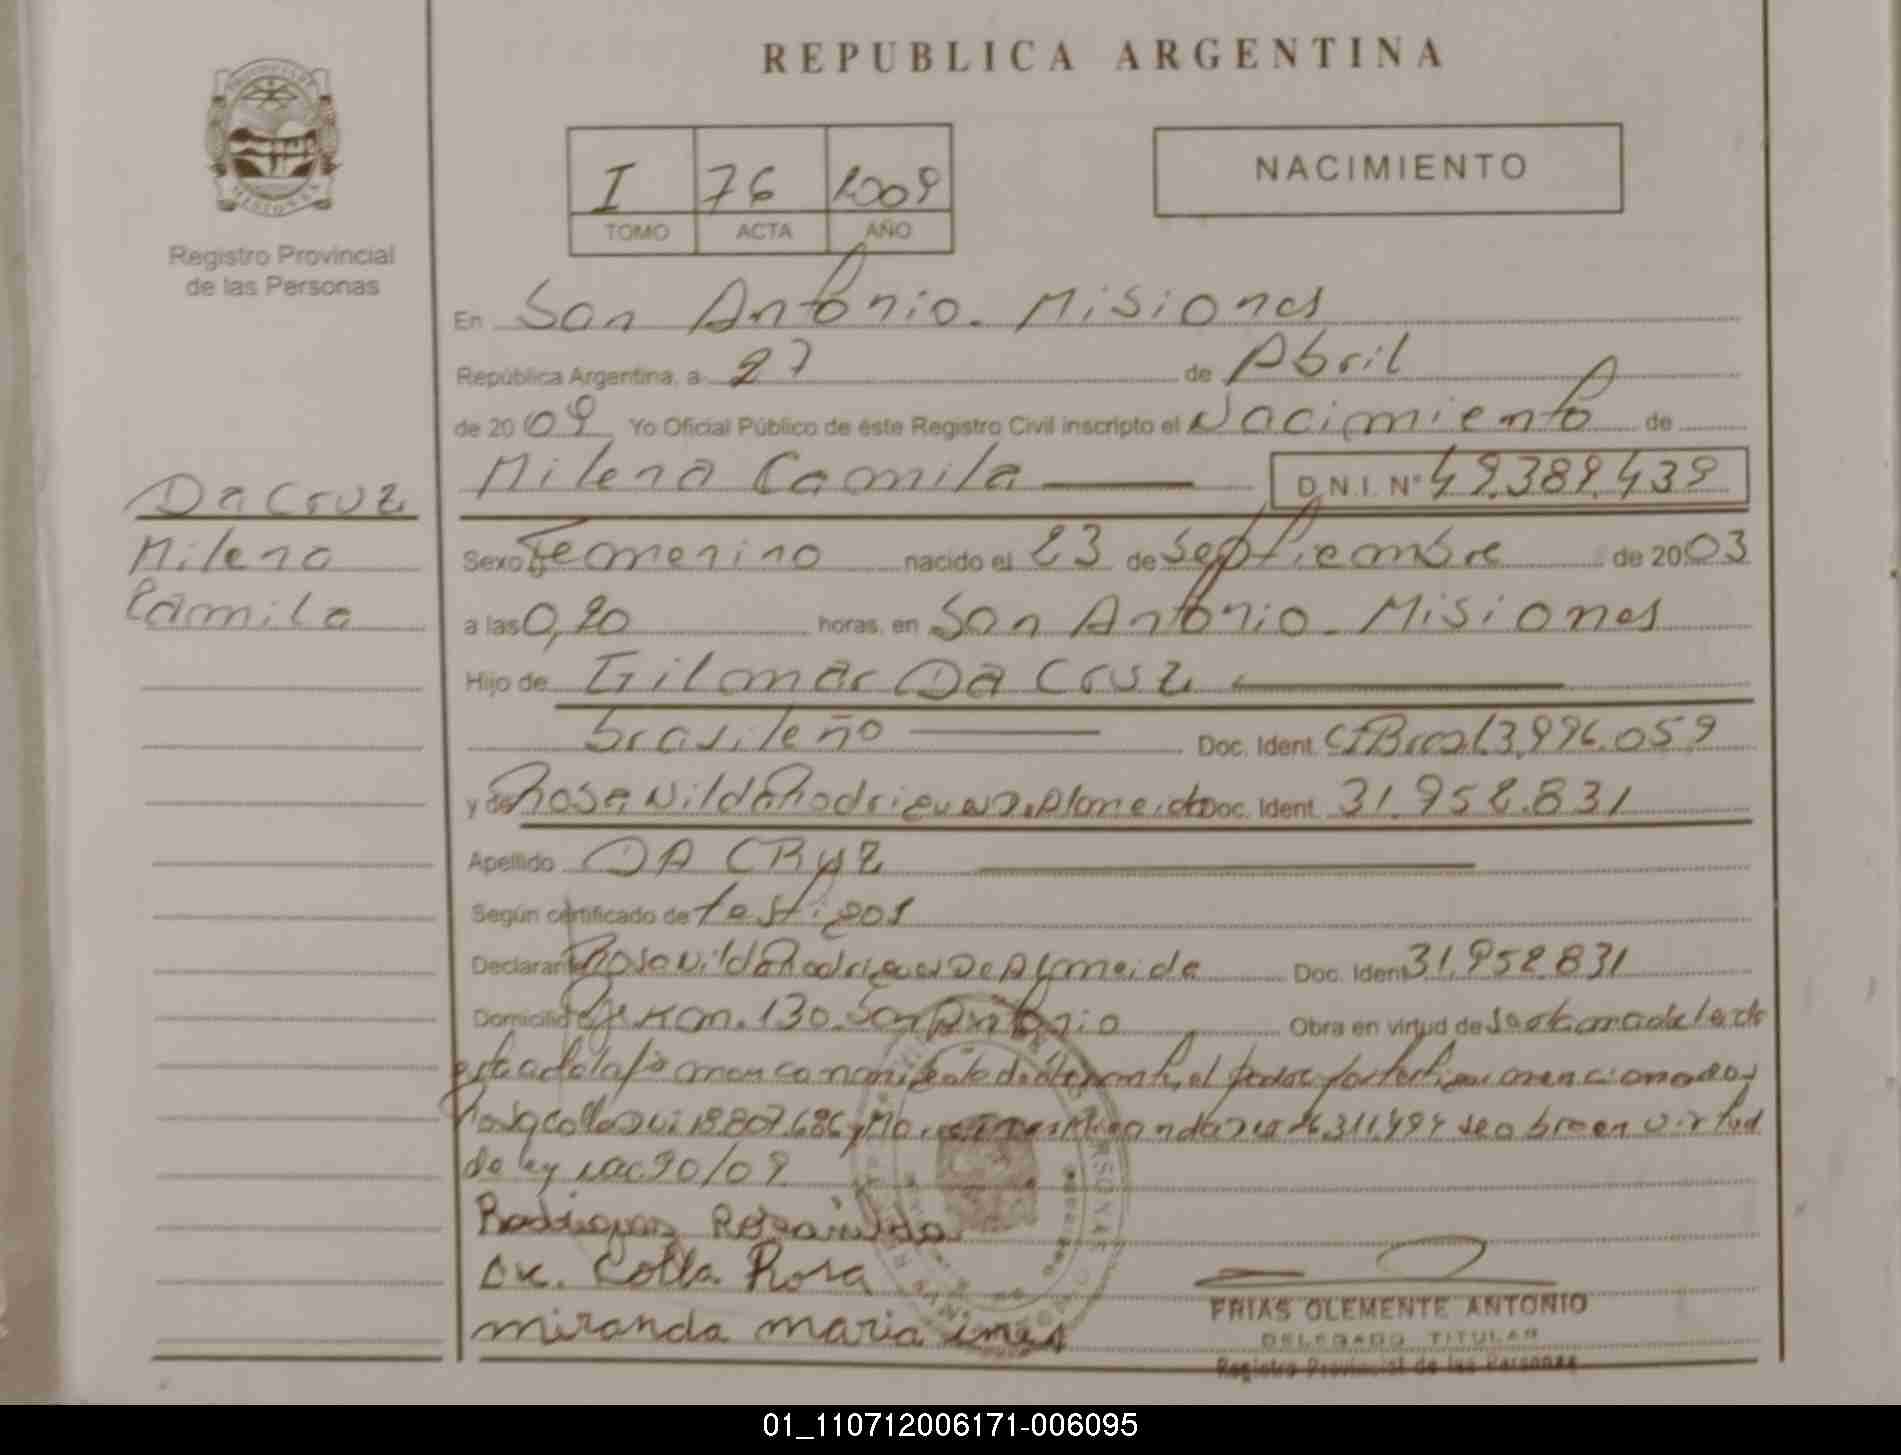 REPUBLICA ARGENTINA
I 76 2009
TOMO ACTA AÑO
NACIMIENTO
Registro Provincial
de las Personas
En San Antonio. Misiones
República Argentina, a 27 de Abril
de 2009 Yo Oficial Público de éste Registro Civil inscripto el Nacimiento de
Milena Camila D.N.I. N° 49.389.439
Da Cruz
Milena
Camila
Sexo Femenino nacido el 23 de Septiembre de 2003
a las 0,20 horas, en San Antonio. Misiones
Hijo de Gilmar Da Cruz
brasileño Doc. Ident. CIBras 13.996.059
y de Rosenilda Rodrigues De Almeida Doc. Ident. 31.952.831
Apellido DA CRUZ
Según certificado de testigos
Declarante Rosenilda Rodrigues De Almeida Doc. Ident 31.952.831
Domicilio Pje Km. 130. San Antonio Obra en virtud de
mencionados
Rosa 18.807.686 y se obra en virtud
de ley nac 90/09
Rodrigues Rosenilda
De. Colla Rosa
miranda maria ines
FRIAS CLEMENTE ANTONIO
DELEGADO TITULAR
Registro Provincial de las Personas
01_110712006171-006095